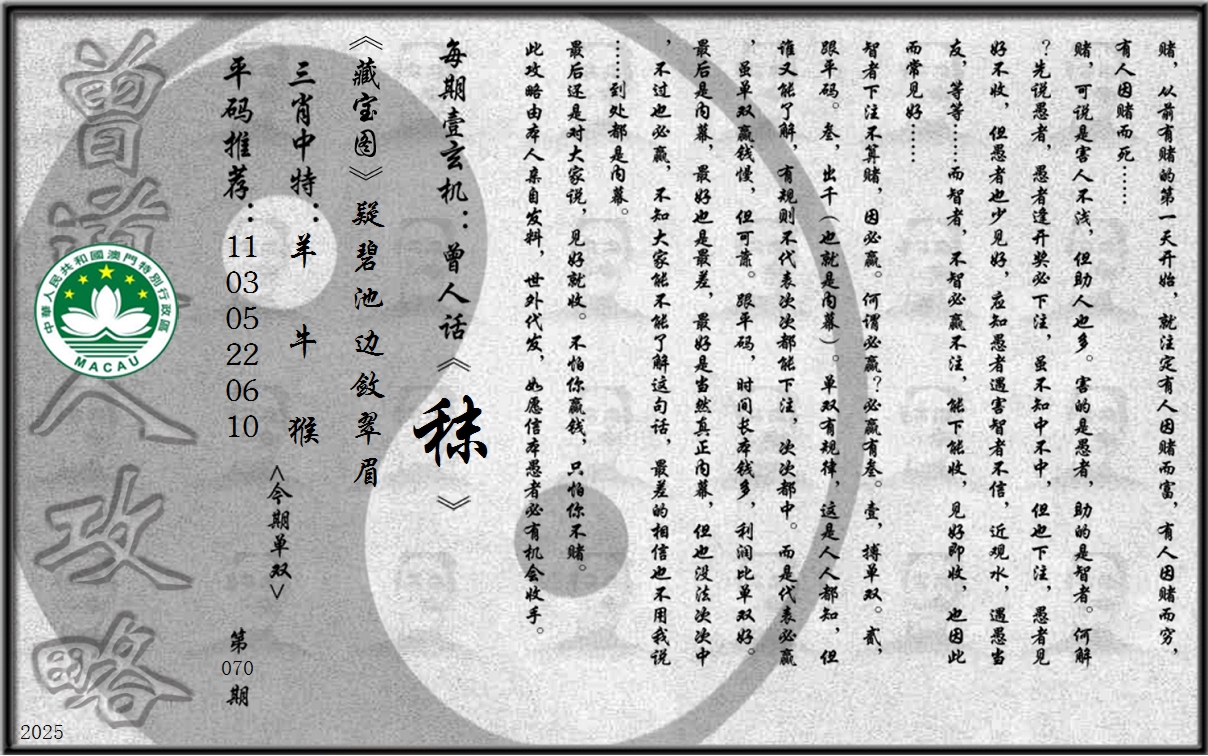 赌，从前有赌的第一天开始，就注定有人因赌而富，有人因赌而穷，
有人因赌而死……
赌，可说是害人不浅，但助人也多。害的是愚者，助的是智者。何解
？先说愚者，愚者逢开奖必下注，虽不知中不中，但也下注，愚者见
好不收，但愚者也少见好，应知愚者遇害智者不信，近观水，遇愚当
友，等等……而智者，不智必赢不注，能下能收，见好即收，也因此
而常见好……
智者下注不算赌，因必赢。何谓必赢？必赢有叁。壹，搏单双。贰，
跟平码。叁，出千（也就是内幕）。单双有规律，这是人人都知，但
谁又能了解，有规则不代表次次都能下注，次次都中。而是代表必赢
，虽单双赢钱慢，但可靠。跟平码，时间长本钱多，利润比单双好。
最后是内幕，最好也是最差，最好是当然真正内幕，但也没法次次中
，不过也必赢，不知大家能不能了解这句话，最差的相信也不用我说
……到处都是内幕。
最后还是对大家说，见好就收。不怕你赢钱，只怕你不赌。
此攻略由本人亲自发料，世外代发，如愿信本愚者必有机会收手。
每期壹玄机：曾人话《秣》
《藏宝图》疑碧池边敛翠眉
三肖中特：羊牛猴
<今期单双>
平码推荐：11 03 05 22 06 10
第070期
曾道人攻略
中華人民共和國澳門特別行政區
MACAU
2025